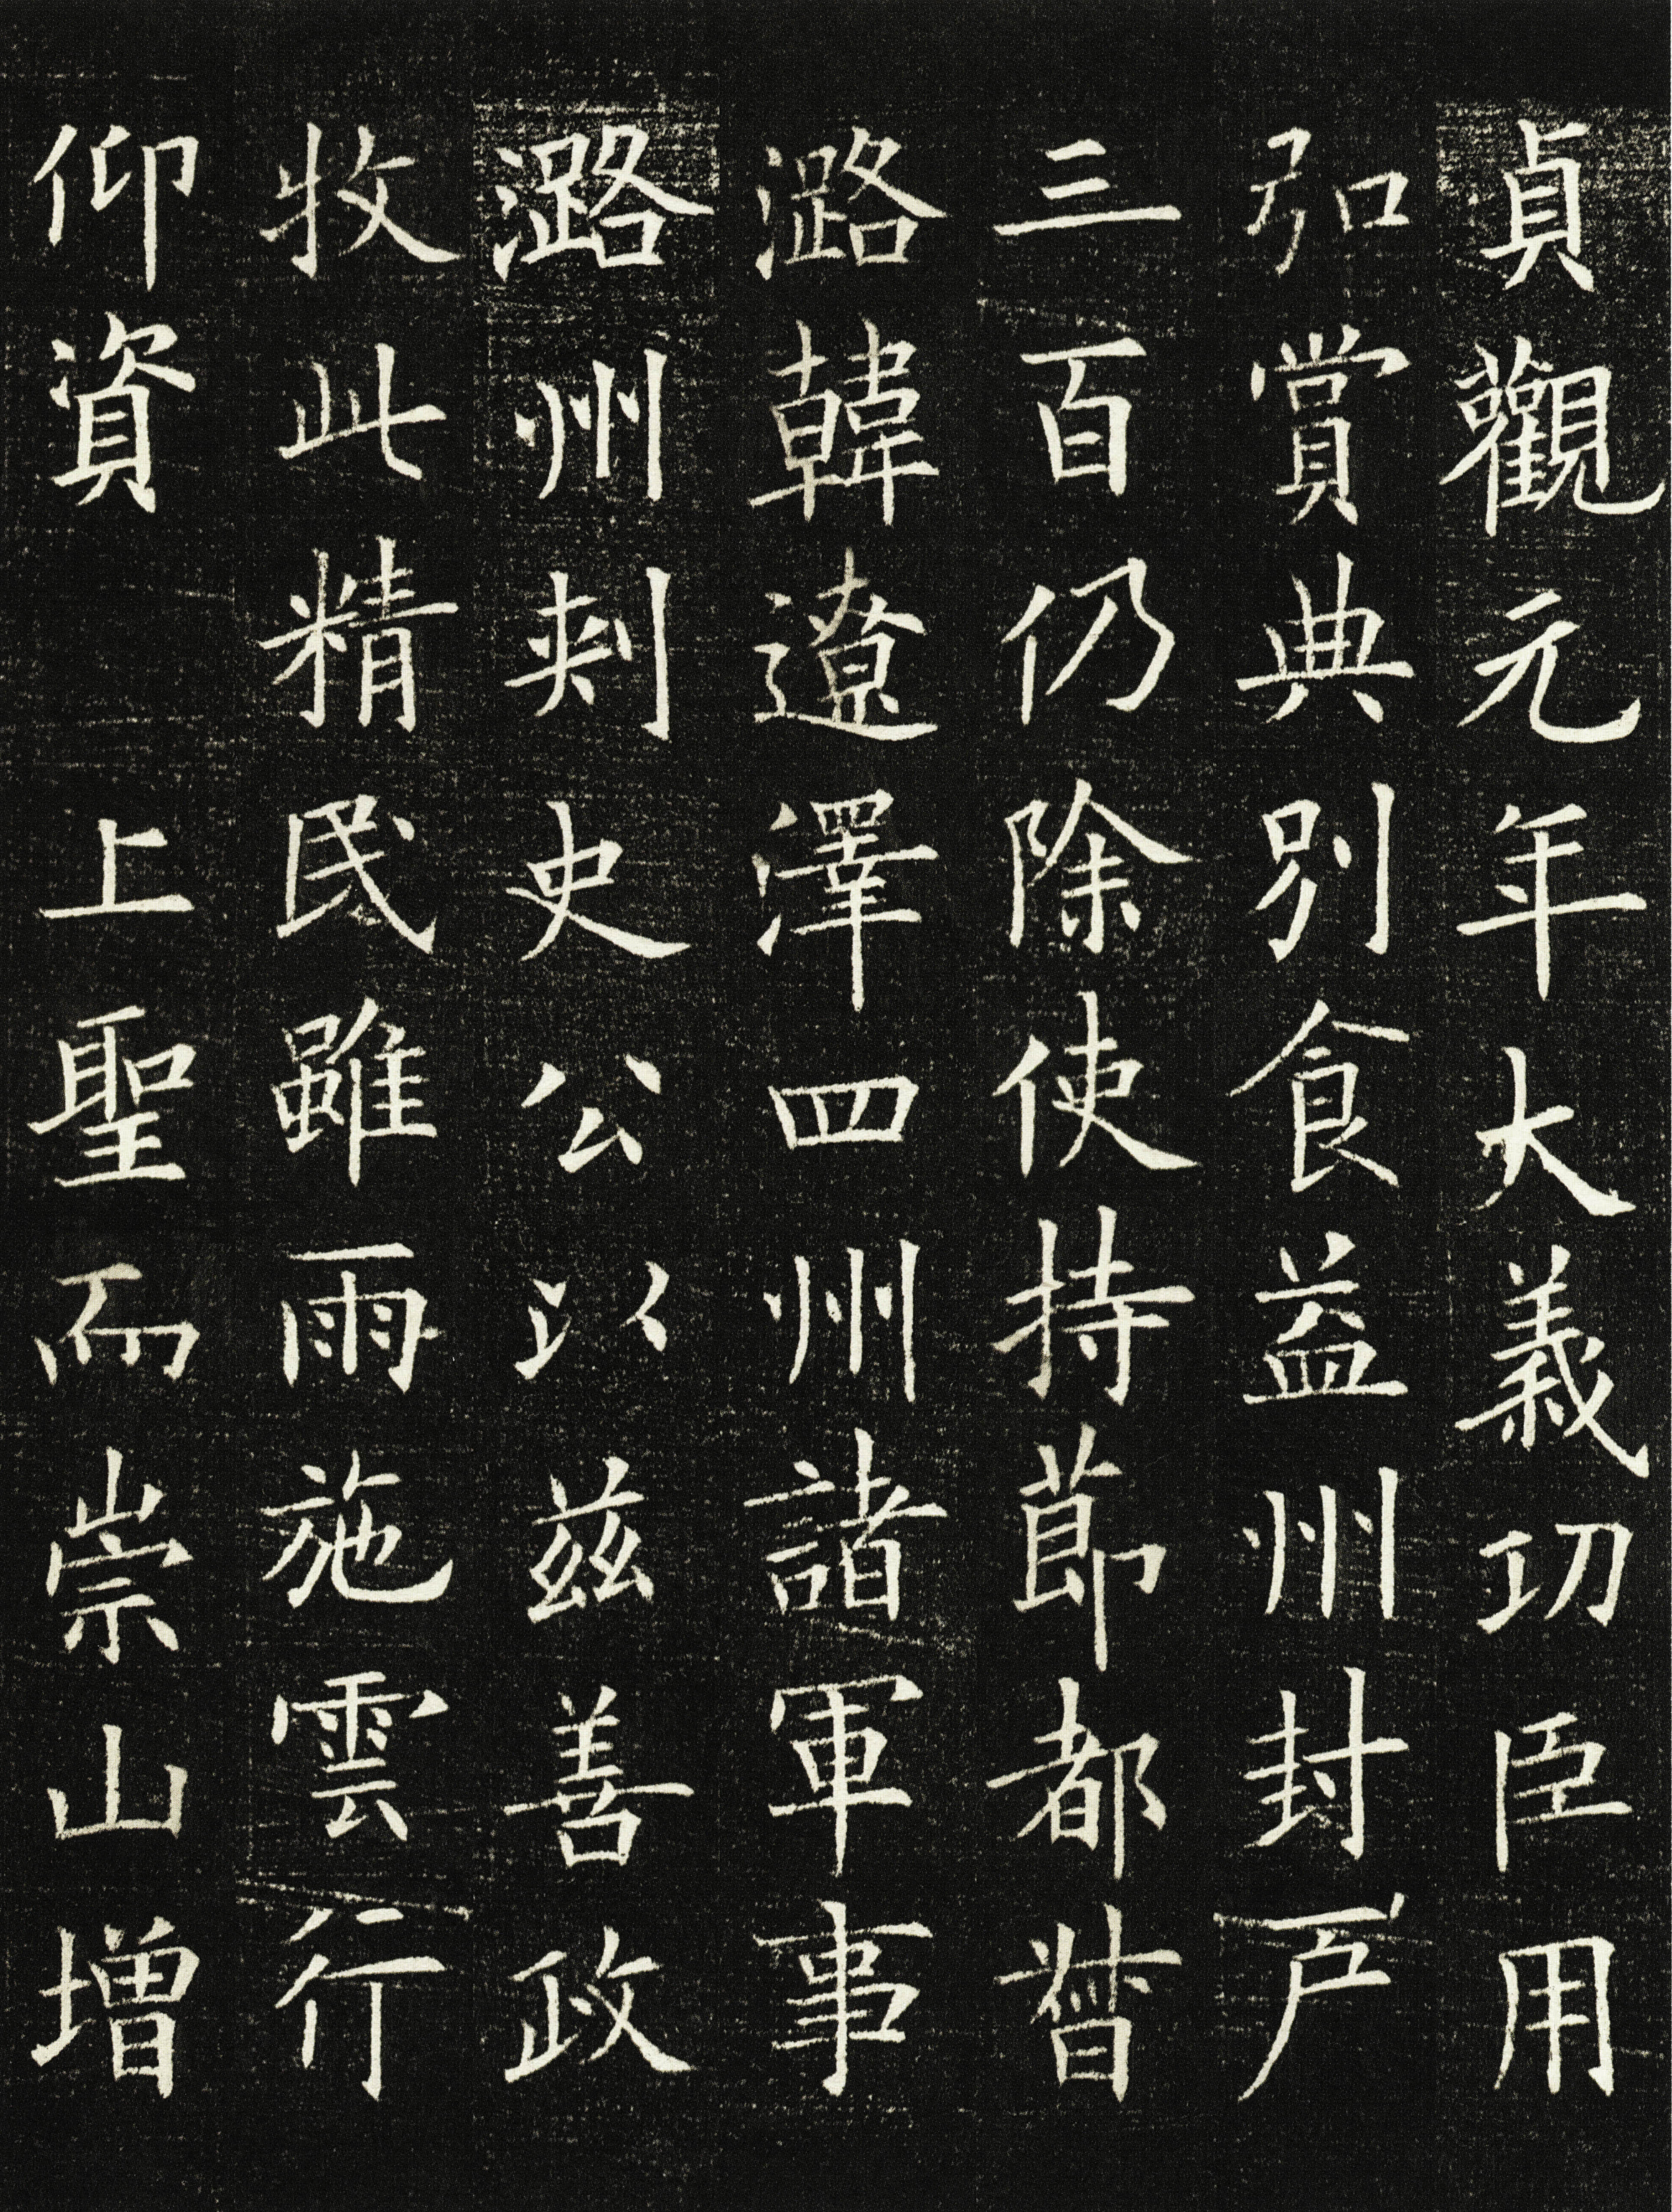 貞觀元年大義功臣用
弘賞典別食益州封戶
三百仍除使持節都督
潞韓遼澤四州諸軍事
潞州刺史公以兹善政
牧此精民雖雨施雲行
仰資 上聖而崇山增